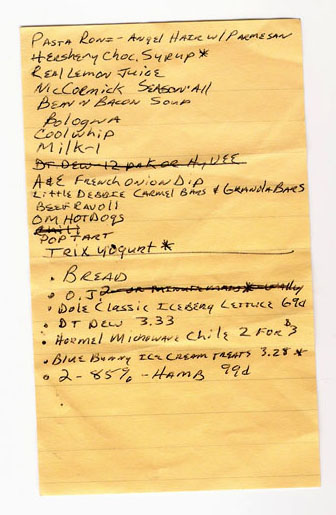 PASTA RONI - ANGEL HAIR W/ PARMESAN
HERSHERY CHOC. SYRUP *
REAL LEMON JUICE
McCORMICK SEASON ALL
BEAN N BACON SOUP
BOLOGNA
COOLWHIP
MILK-1
DT DEW-12 PAK OR HYVEE
A&E FRENCH ONION DIP
LITTLE DEBBIE CARMEL BARS & GRANOLA BARS
BEEF RAVOLI
O.M. HOTDOGS
POP TART
TRIX YOGURT *
• BREAD
• O.J. 2 OR MINUTEMAID *
• DOLE CLASSIC ICEBERG LETTUCE 69¢
• DT DEW 3.33
• HORMEL MICROWAVE CHILE 2 FOR $3
• BLUE BUNNY ICE CREAM TREATS 3.28 *
• 2 - 85% - HAMB 99¢